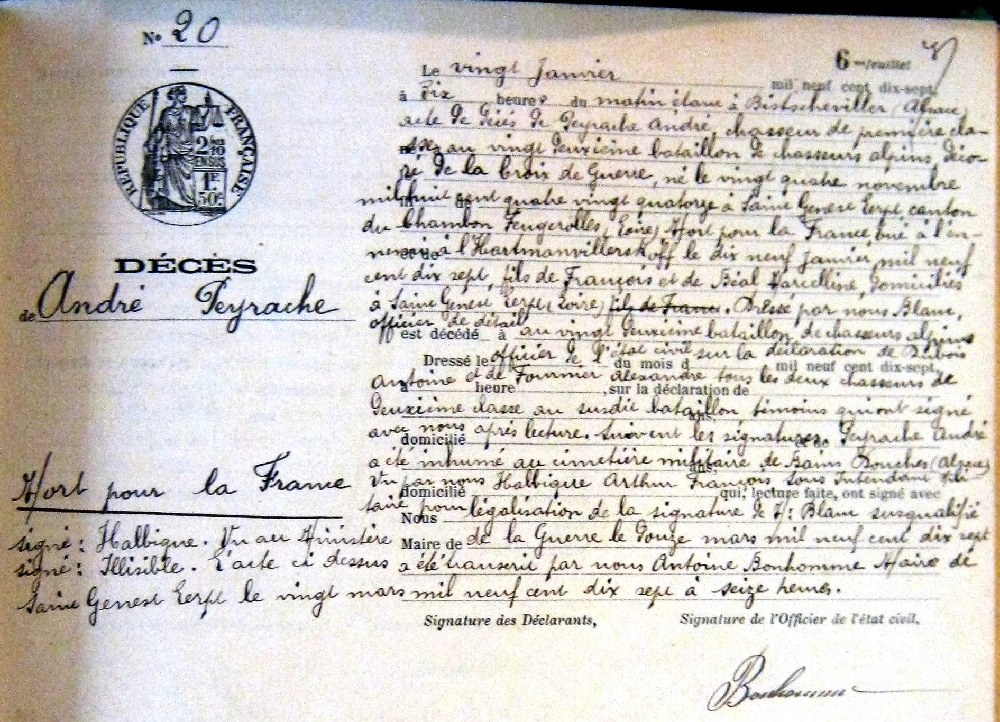 No 20
6 me feuillet
RÉPUBLIQUE FRANÇAISE
2/10 EN SUS
1F 50c
DÉCÈS
de André Peyrache
Mort pour la France
Le vingt Janvier mil neuf cent dix-sept,
à Dix heures du matin étant à Bistscheviller (Alsace)
acte de décès de Peyrache André, chasseur de première cla-
sse au vingt deuxième bataillon de chasseurs alpins, déco-
ré de la Croix de Guerre, né le vingt quatre novembre
mil huit cent quatre vingt quatorze à Saint Genest Lerpt, canton
du Chambon Feugerolles, (Loire) Mort pour la France, tué à l'en-
nemi à l'Hartmanvillerskoff le dix neuf janvier mil neuf
cent dix sept, fils de François et de Béal Marcelline, domiciliés
à Saint Genest Lerpt (Loire) fils de Franc. Dressé par nous Blanc,
officier de détail au vingt deuxième bataillon de chasseurs alpins
est décédé à
officier de l'état civil sur la déclaration de Dubois
Dressé le du mois d mil neuf cent dix-sept,
Antoine et de Fournier Alexandre tous les deux chasseurs de
à heure , sur la déclaration de
deuxième classe au susdit bataillon témoins qui ont signé
ans,
avec nous après lecture. Suivent les signatures. Peyrache André
domicilié et de
a été inhumé au cimetière militaire de Bains Douches (Alsace)
ans,
Vu par nous Halbique Arthur François sous Intendant mili-
domicilié qui, lecture faite, ont signé avec
taire pour légalisation de la signature de M: Blanc susqualifié
Nous
signé: Halbique. Vu au Ministère de la Guerre le douze mars mil neuf cent dix sept
Maire de
signé: Illisible. L'acte ci dessus a été transcrit par nous Antoine Bonhomme Maire de
Saint Genest Lerpt le vingt mars mil neuf cent dix sept à seize heures.
Signature des Déclarants, Signature de l'Officier de l'état civil,
Bonhomme